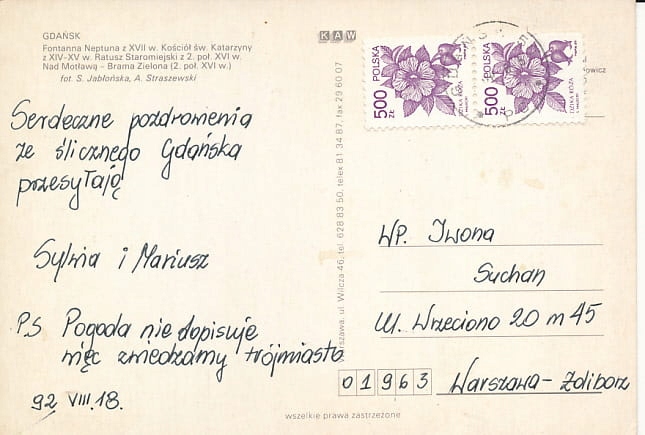 GDAŃSK
Fontanna Neptuna z XVII w. Kościół św. Katarzyny
z XIV-XV w. Ratusz Staromiejski z 2. poł. XVI w.
Nad Motławą – Brama Zielona (2. poł. XVI w.)
fot. S. Jabłońska, A. Straszewski
Serdeczne pozdrowienia
ze ślicznego Gdańska
przesyłają
Sylwia i Mariusz
PS Pogoda nie dopisuje
więc zwiedzamy trójmiasto
92 VIII.18.
KAW
Warszawa, ul. Wilcza 46, tel. 628 83 50, telex 81 34 87, fax 29 60 07
POLSKA
500 ZŁ
DZIKA RÓŻA
POLSKA
500 ZŁ
DZIKA RÓŻA
WP. Iwona
Suchan
Ul. Wrzeciono 20 m 45
01963 Warszawa – Żoliborz
wszelkie prawa zastrzeżone